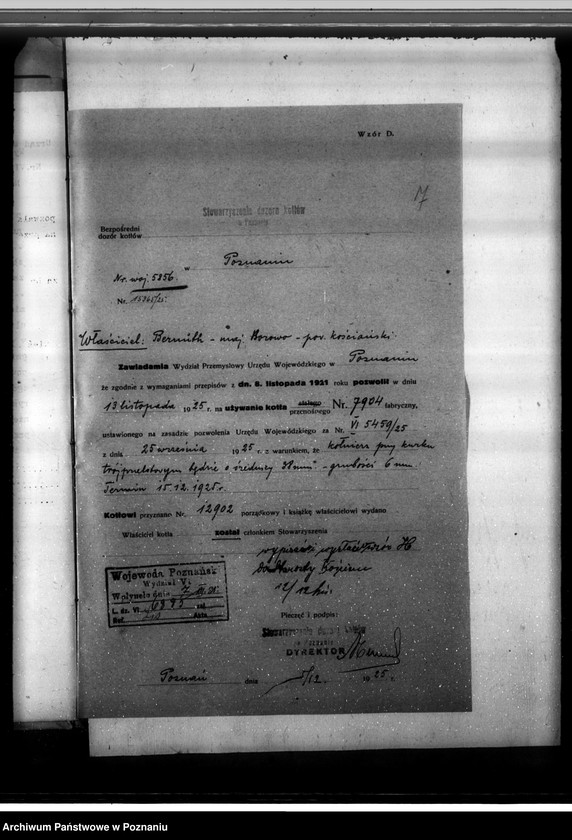 Wzór D.
17
Stowarzyszenie dozoru kotłów
w Poznaniu
Bezpośredni
dozór kotłów
w Poznaniu
Nr. woj. 5856.
Nr.
Właściciel: - maj. Borowo - pow. kościański.
Zawiadamia Wydział Przemysłowy Urzędu Wojewódzkiego w Poznaniu
że zgodnie z wymaganiami przepisów z dn. 8. listopada 1921 roku pozwolił w dniu
13 listopada 1925 r. na używanie kotła stałego przenośnego Nr. 7904 fabryczny,
ustawionego na zasadzie pozwolenia Urzędu Wojewódzkiego za Nr. VI 5459/25
z dnia 25 września 1925 r. z warunkiem, że kołnierz przy kurku
będzie o średnicy - grubości 6 mm
Termin 15.12.1925 r.
Kotłowi przyznano Nr. 12902 porządkowy i książkę właścicielowi wydano
Właściciel kotła został członkiem Stowarzyszenia
Wojewoda Poznański
Wydział VI.
Wpłynęło dnia 7. XII. 25.
L. dz. VI. zał.
Ref. data
Pieczęć i podpis:
Stowarzyszenie dozoru kotłów
w Poznaniu
DYREKTOR
Poznań dnia 5/12. 1925 r.
Archiwum Państwowe w Poznaniu